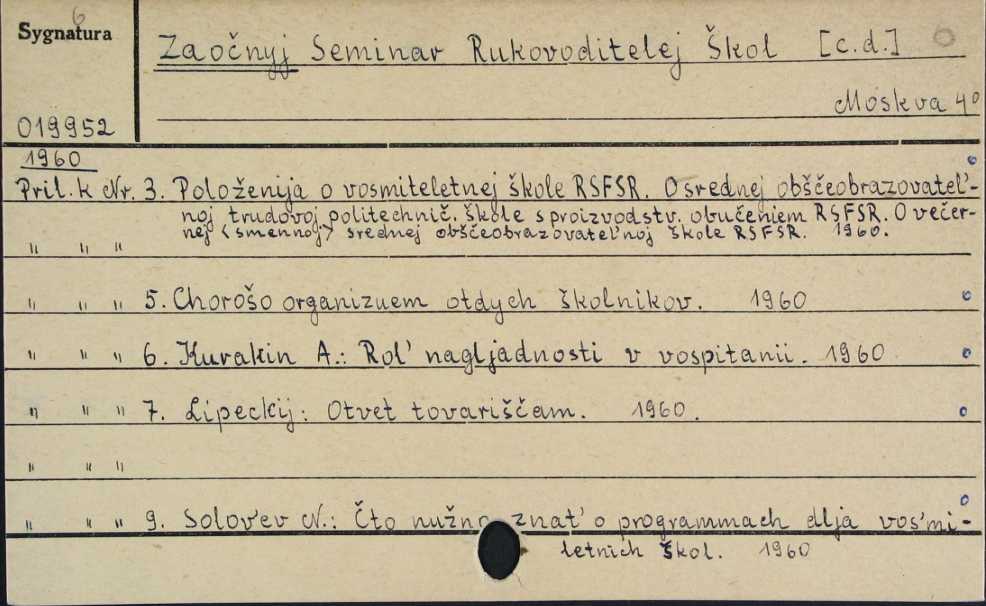 6
Sygnatura
Zaočnyj Seminar Rukovoditelej Škol [c.d.] 6
Moskva 4°
019952
1960
Pril. k Nr. 3. Položenija o vosmiletnej škole RSFSR. O srednej obščeobrazovatel'-
noj trudovoj politechnič. škole s proizvodstv. obučeniem RSFSR. O večer-
" " " nej (smennoj) srednej obščeobrazovatel'noj škole RSFSR. 1960.
" " " 5. Chorošo organizuem otdych školnikov. 1960
" " " 6. Kurakin A.: Rol' nagljadnosti v vospitanii. 1960
" " " 7. Lipeckij: Otvet tovariščam. 1960.
" " "
" " " 9. Solov'ev N.: Čto nužno znat' o programmach dlja vos'mi-
letnich škol. 1960